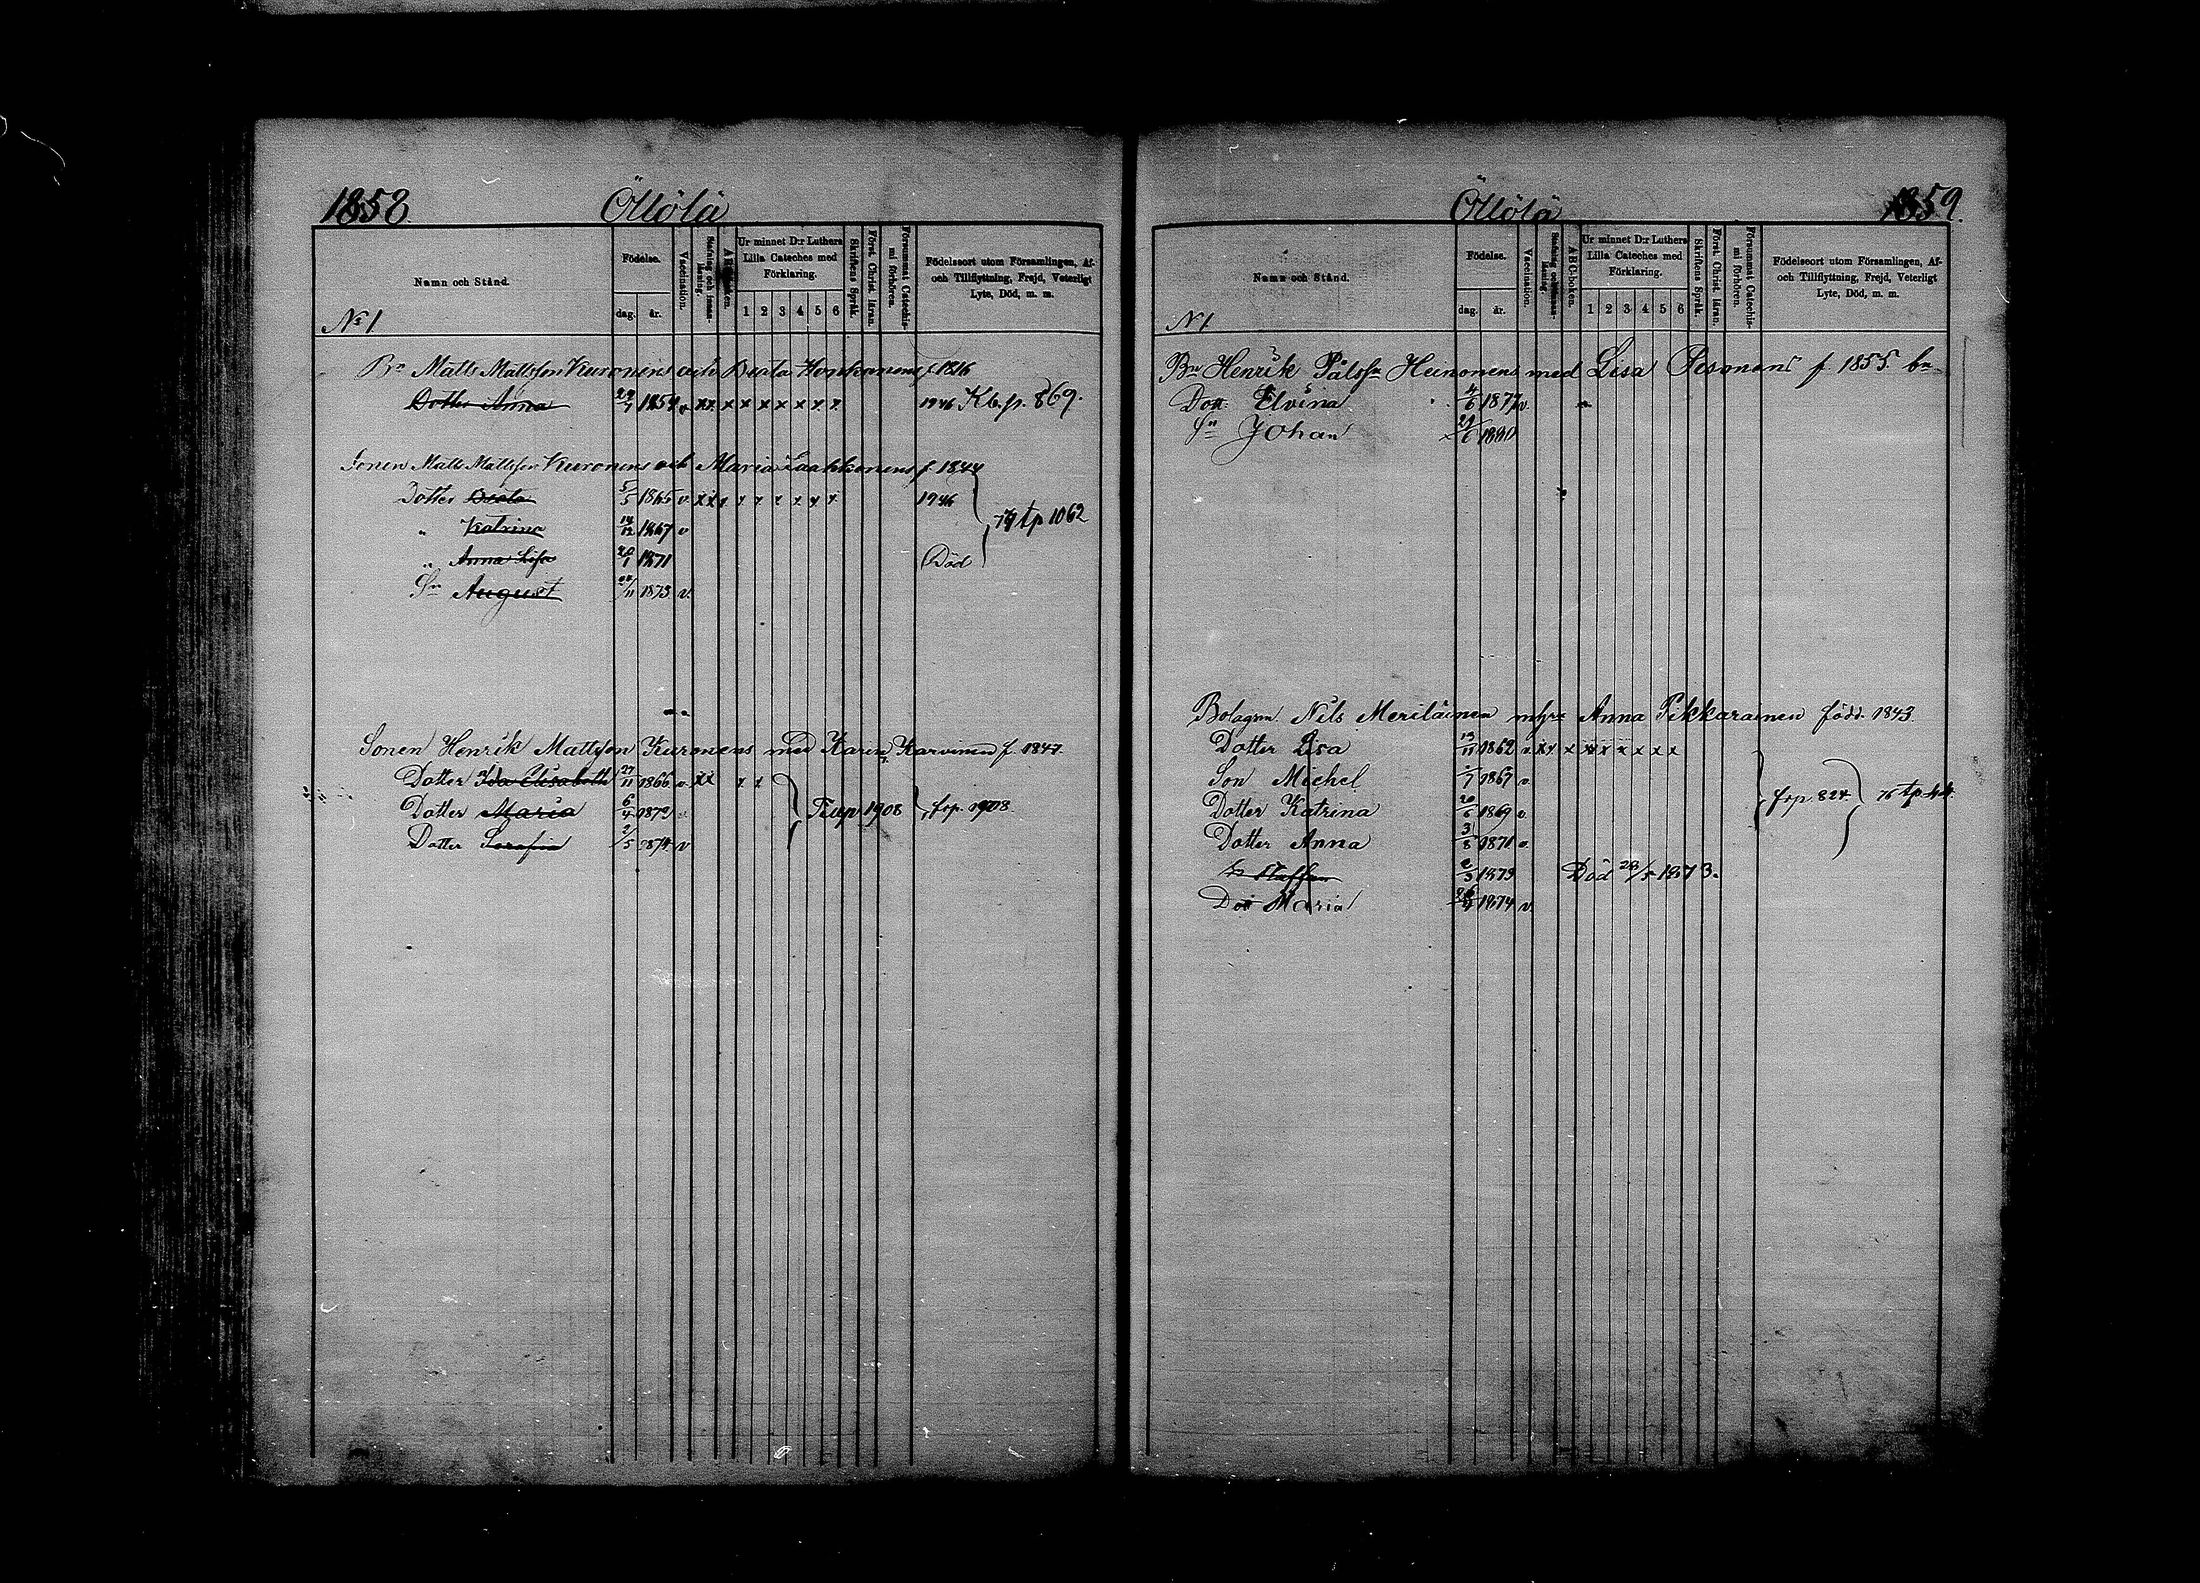 1858.
Öllölä
Namn och Stånd.
Födelse.
dag.
år.
Vaccination.
Stafning och innan-läsning.
Ur minnet D:r Luthers Lilla Cateches med Förklaring.
1 2 3 4 5 6
Skriftens Språk.
Först. Christ. läran.
Försummat Catechis-mi förhören.
Födelseort utom Församlingen, Af-
och Tillflyttning, Frejd, Veterligt
Lyte, Död, m. m.
No 1
Bn Matts Mattsson Kuronens och Beata Honkanens f. 1816
Dotter Anna 1859 v x x x x x x x x 1946 Kb. p. 869.
Sonen Matts Mattsson Kuronens och Maria Laakkonens f. 1844
Dotter Beata 5/5 1865 v x x x x x x x x x 1946
" Katrina 1867 v tp 1062
" Anna Lisa 20/1 1871 Död
Sn August 1873 v.
Sonen Henrik Mattsson Kuronens med Karin Karvinen f. 1847
Dotter Ida Elisabeth 27/11 1866 v x x x x
Dotter Maria 6/4 1872 v 1908 frp. 1908
Dotter Serafia 2/5 1874 v
Öllölä
1859.
Namn och Stånd.
Födelse.
dag.
år.
Vaccination.
ABC-boken.
Ur minnet D:r Luthers Lilla Cateches med Förklaring.
1 2 3 4 5 6
Skriftens Språk.
Först. Christ. läran.
Försummat Catechis-mi förhören.
Födelseort utom Församlingen, Af-
och Tillflyttning, Frejd, Veterligt
Lyte, Död, m. m.
N 1
Bn Henrik Pålssn Heinonens med Lisa Pesonens f. 1855.
Dott. Elvina 4/6 1877 v.
Sn Johan 1880
Bolagsm. Nils Meriläinen m hu Anna Pikkarainen född. 1843.
Dotter Lisa 13/11 1862 v. x x x x x x x x x
Son Michel 1867 v.
Dotter Katrina 20/6 1869 v. frp. 824. tp.
Dotter Anna 3/8 1871 v.
Sn Staffan 2/3 1873 Död 1873.
Dott Maria 1874 v.